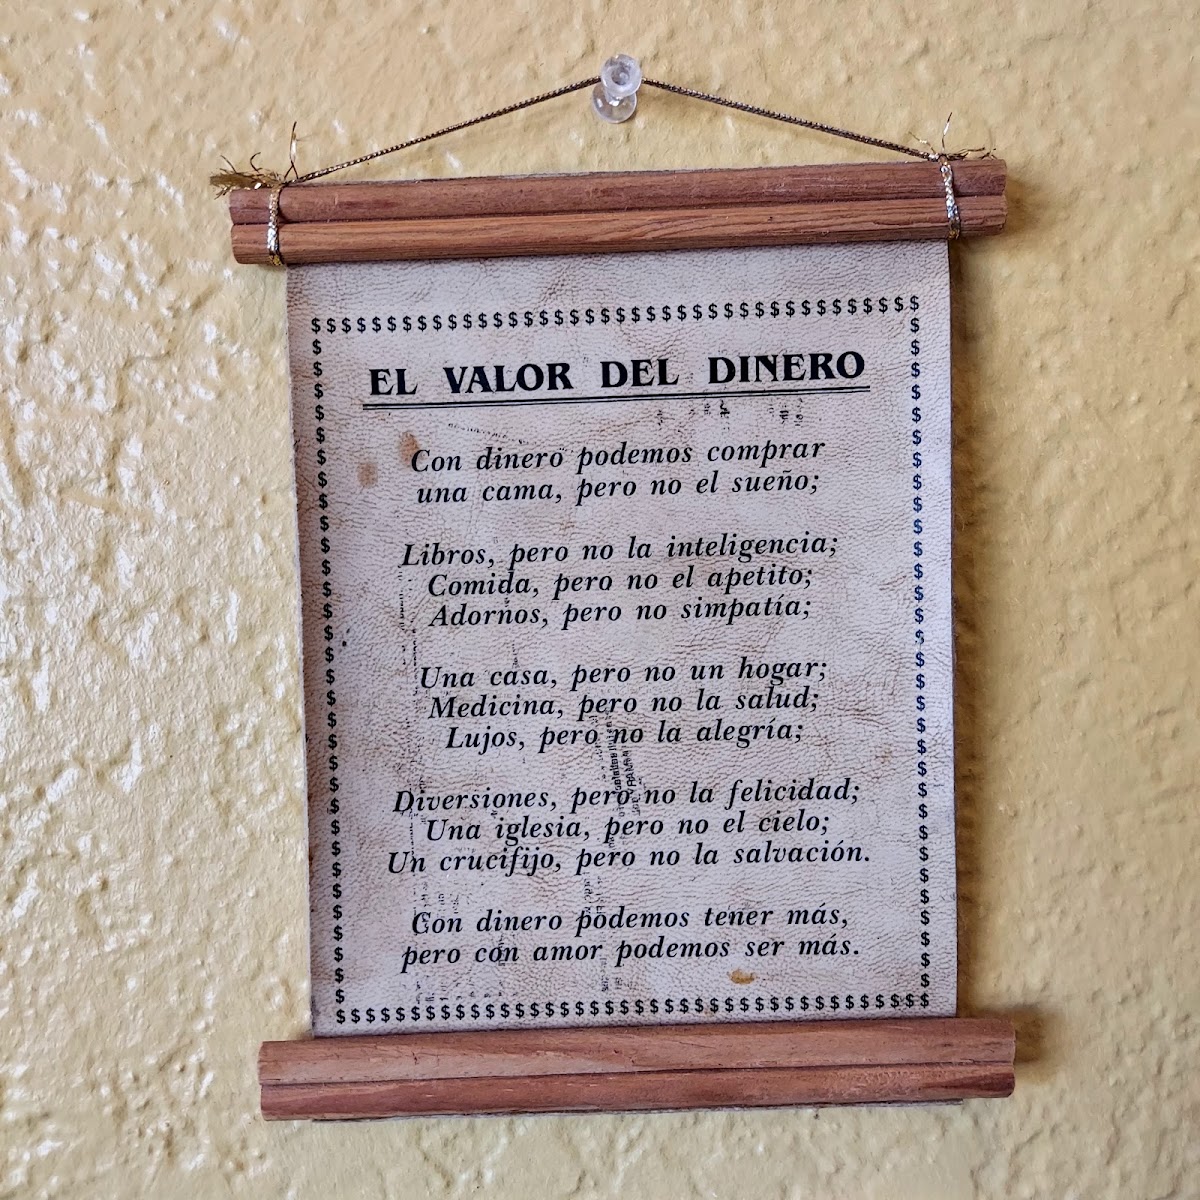 EL VALOR DEL DINERO
Con dinero podemos comprar
una cama, pero no el sueño;
Libros, pero no la inteligencia;
Comida, pero no el apetito;
Adornos, pero no simpatía;
Una casa, pero no un hogar;
Medicina, pero no la salud;
Lujos, pero no la alegría;
Diversiones, pero no la felicidad;
Una iglesia, pero no el cielo;
Un crucifijo, pero no la salvación.
Con dinero podemos tener más,
pero con amor podemos ser más.